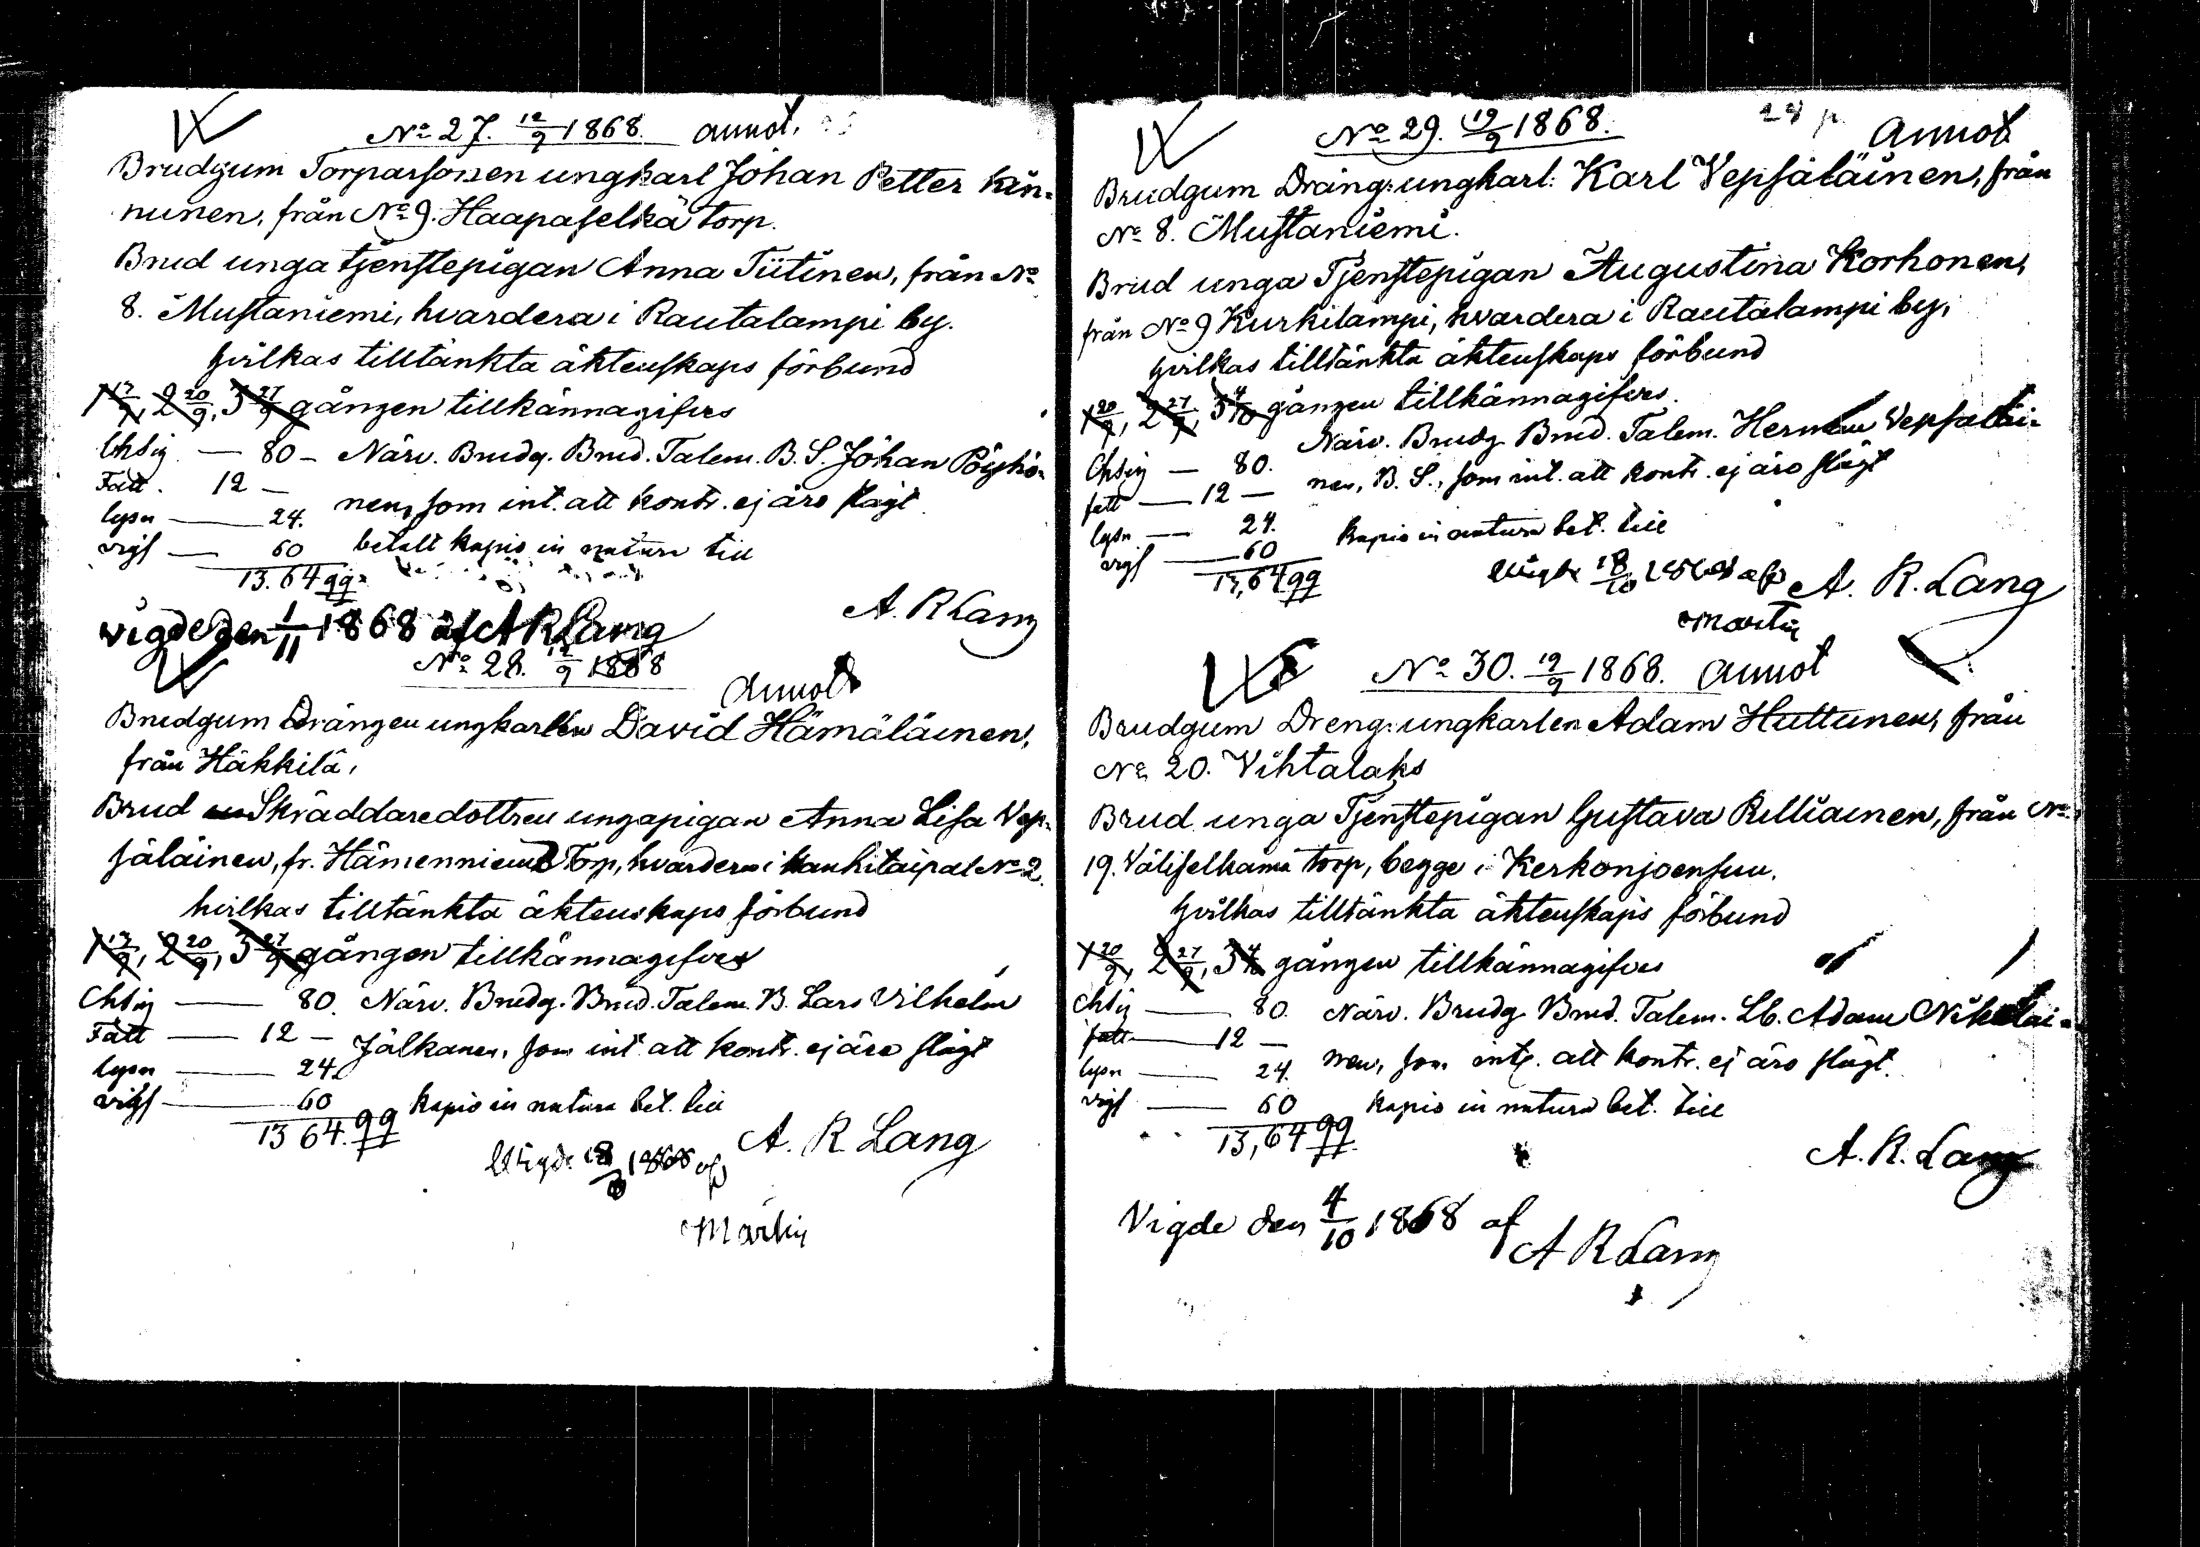 No 27. 12/9 1868. annot.
Brudgum Torparsonen ungkarl Johan Petter Kin-
nunen, från No 9. Haapaselkä torp.
Brud unga tjenstepigan Anna Tiitinen, från No
8. Mustaniemi, hvardera i Rautalampi by.
hvilkas tilltänkta äktenskaps förbund
1 13/9, 2 20/9, 3 27/9 gången tillkännagifves
80 – Närv. Brudg. Brud. Talem. B. S. Johan Pöyhö-
Fatt. 12 –
nen, som int. att kontr. ej äro slägt
lysn — 24.
vigs — 60 betalt kapio in natura till
13.64
A. R Lang
vigde den 1/11 1868 af A R Lang
No 28. 12/9 1868
annot
Brudgum Drängen ungkarlen David Hämäläinen,
från Häkkilä,
Brud Skräddaredottren ungapigan Anna Lisa Vep-
säläinen, fr. Hämenniemi Torp, hvardera i Hankitaipal No 2.
hvilkas tilltänkta äktenskaps förbund
1 13/9, 2 20/9, 3 27/9 gången tillkännagifves
80. Närv. Brudg. Brud. Talem. B. Lars Vilhelm
Fatt — 12 –
Jälkanen, som int att kontr. ej äro slägt
lysn — 24
vigs — 60 kapio in natura bet. till
13 64.
A. R Lang
Vigde 18 1868 af
Martin
No 29. 19/9 1868.
annot
Brudgum Dräng. ungkarl: Karl Vepsäläinen, från
No 8. Mustaniemi.
Brud unga Tjenstepigan Augustina Korhonen,
från No 9 Kurkilampi, hvardera i Rautalampi by,
hvilkas tilltänkta äktenskaps förbund
1 20/9, 2 27/9, 3 4/10 gången tillkännagifves.
Närv. Brudg Brud. Talem. Herman Vepsäläi-
80.
fatt — 12 — nen, B. S., som int. att kontr. ej äro slägt
lysn — 24. Kapio in natura bet. till
vigs — 60
13,64
Vigde 18/10 1868 af
A. R. Lang
Martin
No 30. 19/9 1868. annot
Brudgum Dreng. ungkarlen Adam Huttunen, från
No 20. Vihtalaks
Brud unga Tjenstepigan Gustava Rilliainen, från No
19. Väliselkämä torp, begge i Kerkonjoensuu.
hvilkas tilltänkta äktenskaps förbund
1 20/9, 2 27/9, 3 4/10 gången tillkännagifves
80. Närv. Brudg Brud. Talem. Lb. Adam Nikolai-
fatt — 12 —
nen, som int. att kontr. ej äro slägt.
lysn — 24.
vigs — 60 kapio in natura bet. till
13,64
A. R. Lang
Vigde den 4/10 1868 af
A R Lang